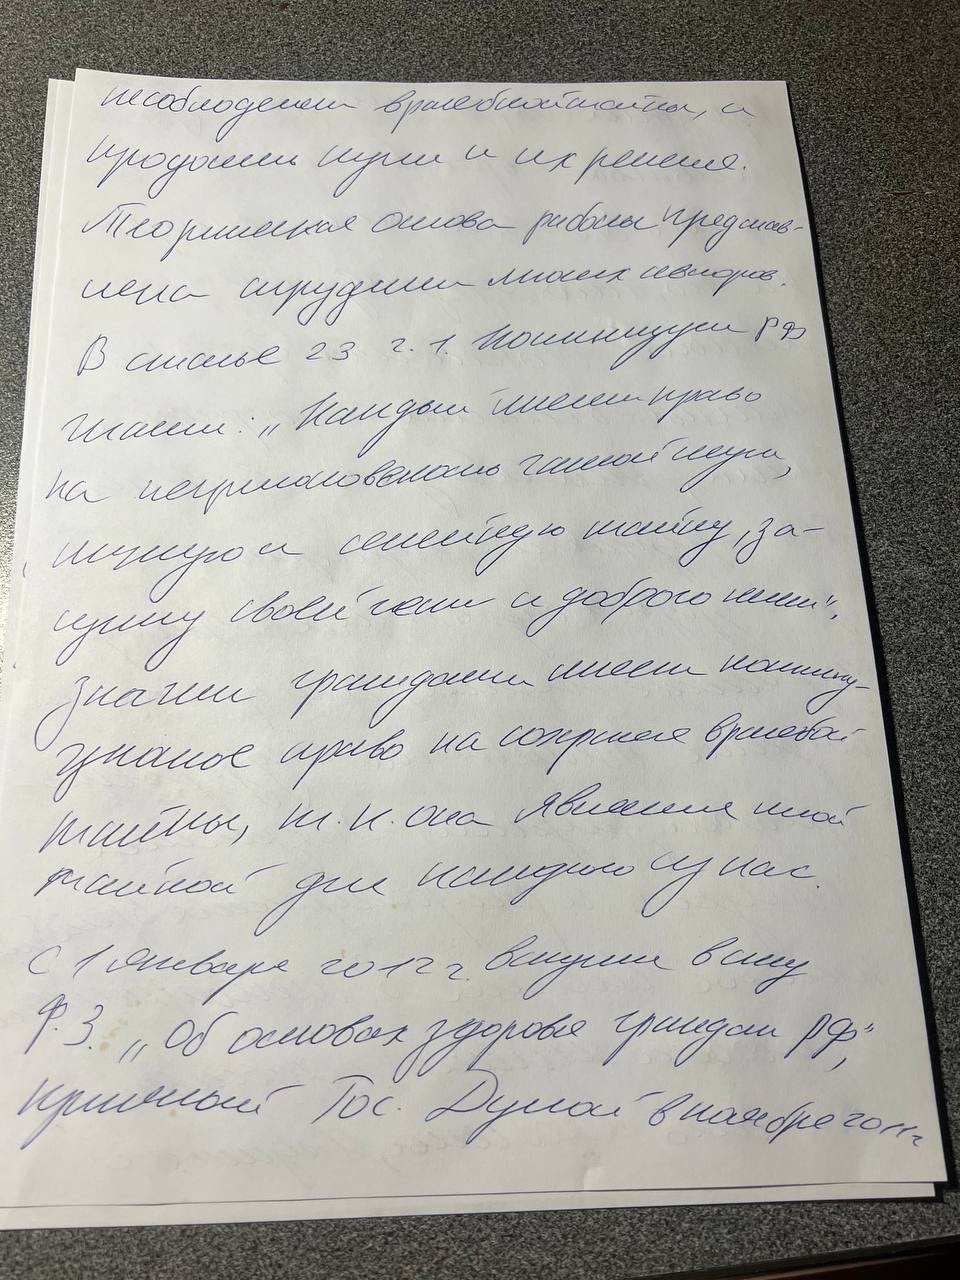 несоблюдении врачебной тайны, и
продолжить пути и их решения.
Теоритическая основа работы представ-
лена трудами многих авторов.
В статье 23 г. 1. Конституции РФ
гласит: „Каждый имеет право
на неприкосновенность частной жизни,
личную и семейную тайну, за-
щиту своей чести и доброго имени",
значит граждане имеет конститу-
ционное право на сохранение врачебной
тайны, т.к. она является иной
тайной для каждого из нас.
С 1 января 2012 г. вступил в силу
Ф.З. „Об основах здоровья граждан РФ",
принятый Гос. Думой в ноябре 2011г